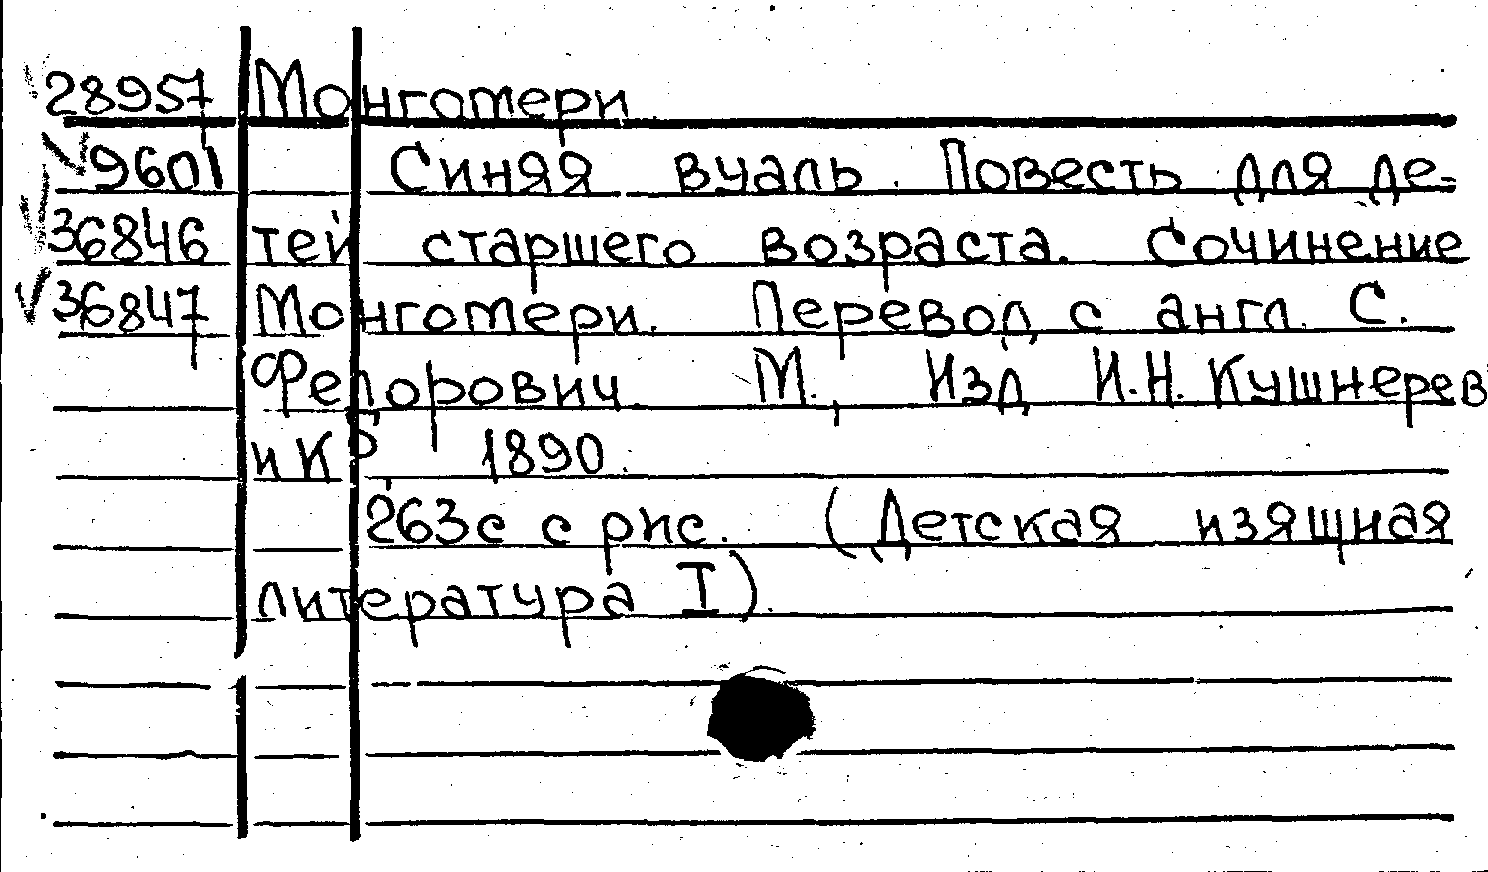 28957 Монготери
9601 Синяя вуаль. Повесть для де-
36846 тей старшего возраста. Сочинение
36847 Монготери. Перевод с англ. С.
Федорович. М., Изд И.Н. Кушнерев
и Кº, 1890.
263с с рис. (Детская изящная
литература I).